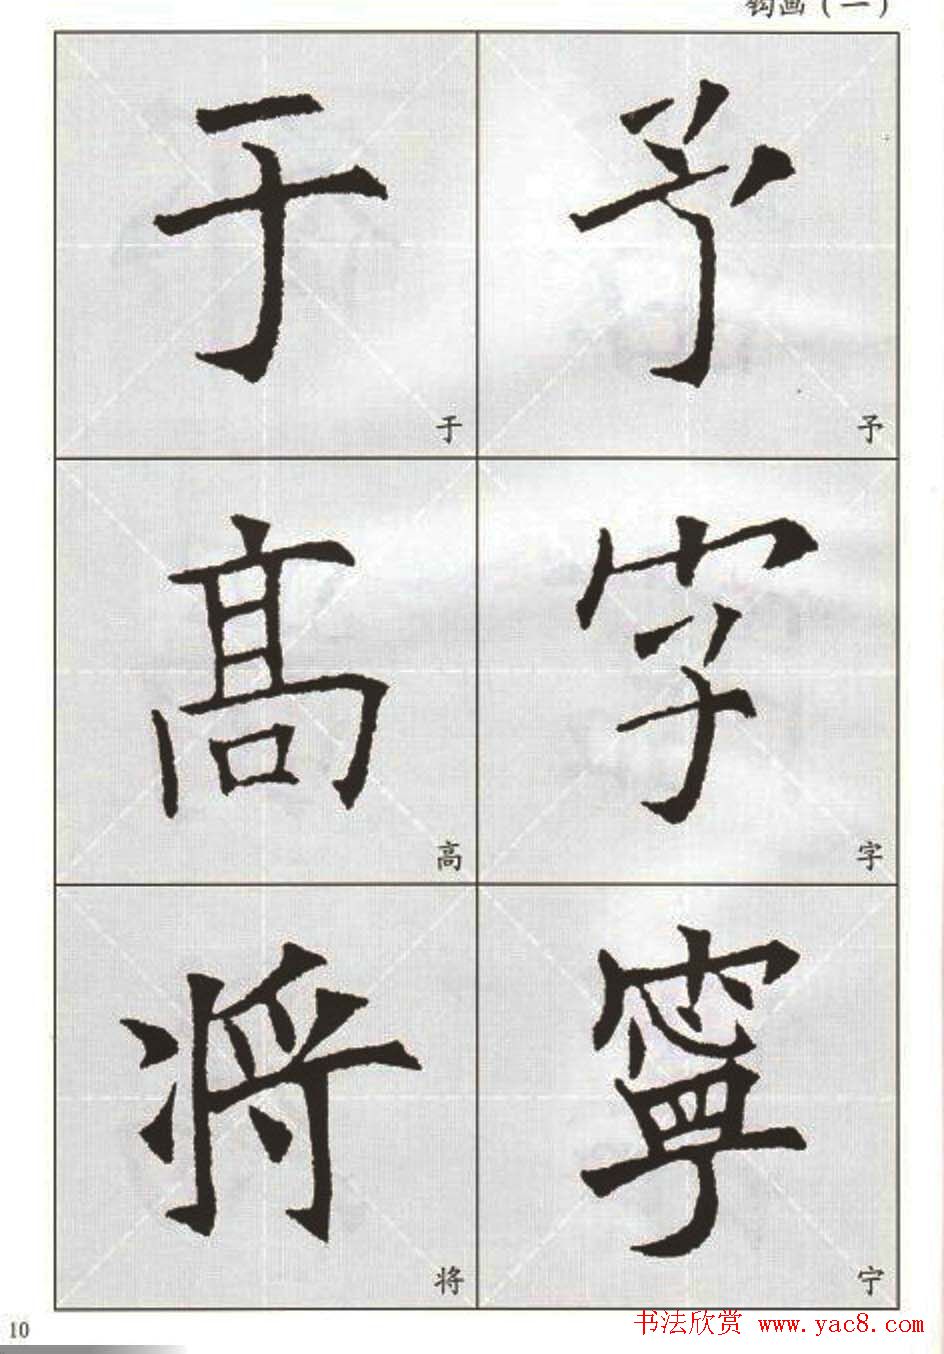 钩画（一）
于 予
于 予
高 字
高 字
将 寧
将 宁
10
书法欣赏 www.yac8.com